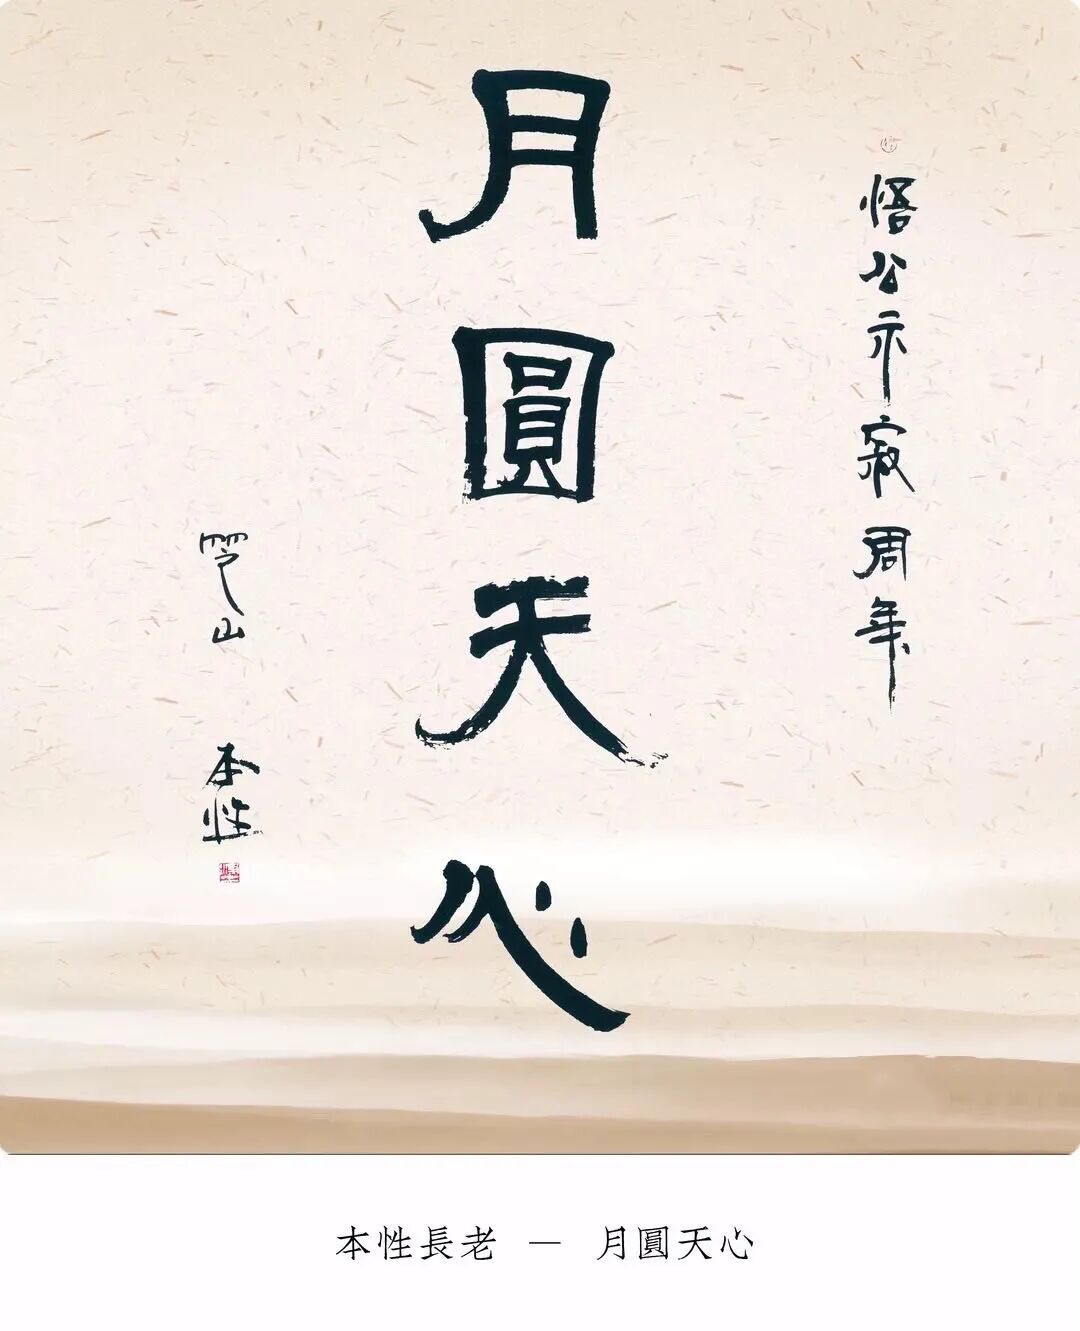 悟公示寂周年
月圓天心
罗山
本性
本性長老 — 月圓天心